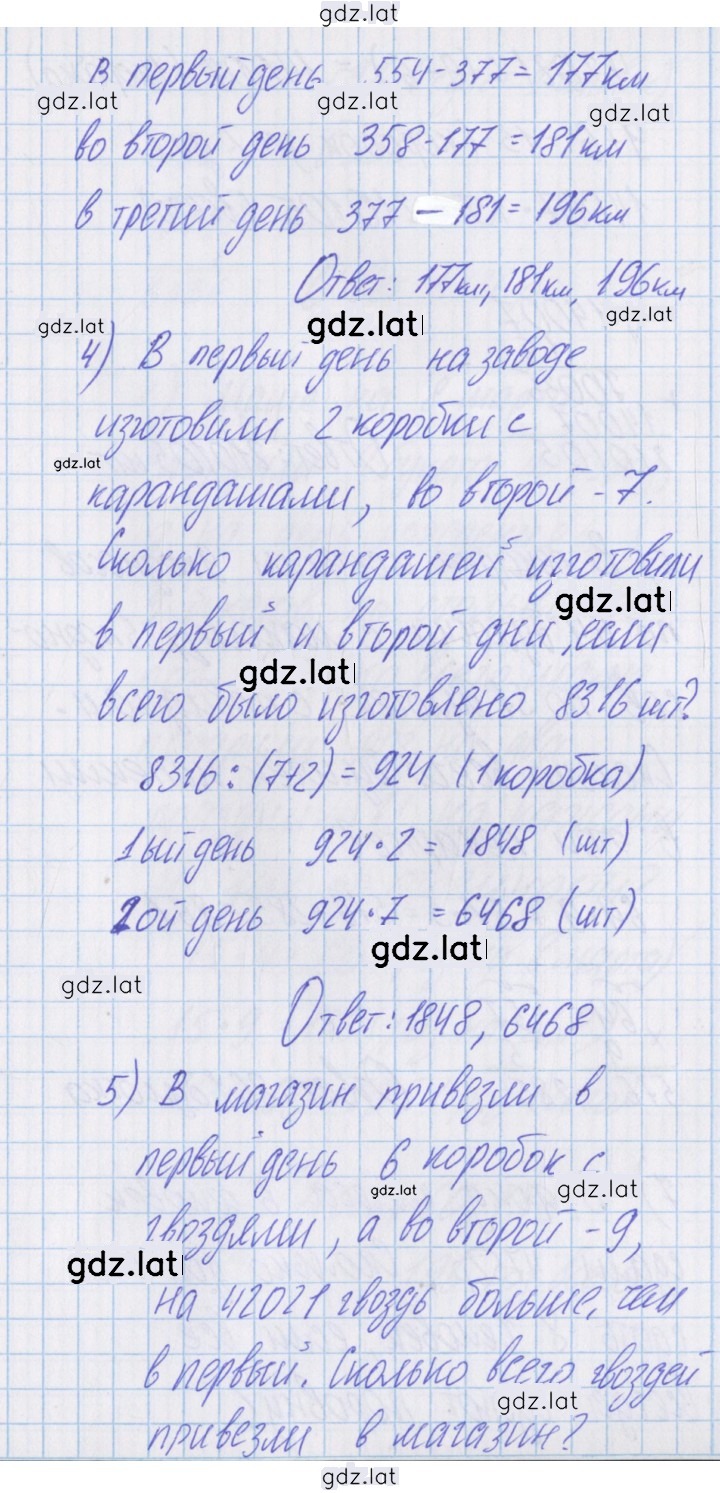 gdz.lat
В первый день 554-377=177км
gdz.lat gdz.lat gdz.lat
во второй день 358-177=181км
в третий день 377-181=196км
Ответ: 177км, 181км, 196км
gdz.lat gdz.lat gdz.lat
4) В первый день на заводе
изготовили 2 коробки с
gdz.lat
карандашами, во второй -7.
Сколько карандашей изготовили
gdz.lat
в первый и второй дни, если
gdz.lat
всего было изготовлено 8316 шт?
8316:(7+2)=924 (1 коробка)
1ый день 924·2=1848 (шт)
2ой день 924·7=6468 (шт)
gdz.lat
gdz.lat
Ответ: 1848, 6468
5) В магазин привезли в
первый день 6 коробок с
gdz.lat gdz.lat
гвоздями, а во второй -9,
gdz.lat
на 42021 гвоздь больше, чем
в первый. Сколько всего гвоздей
gdz.lat
привезли в магазин?
gdz.lat